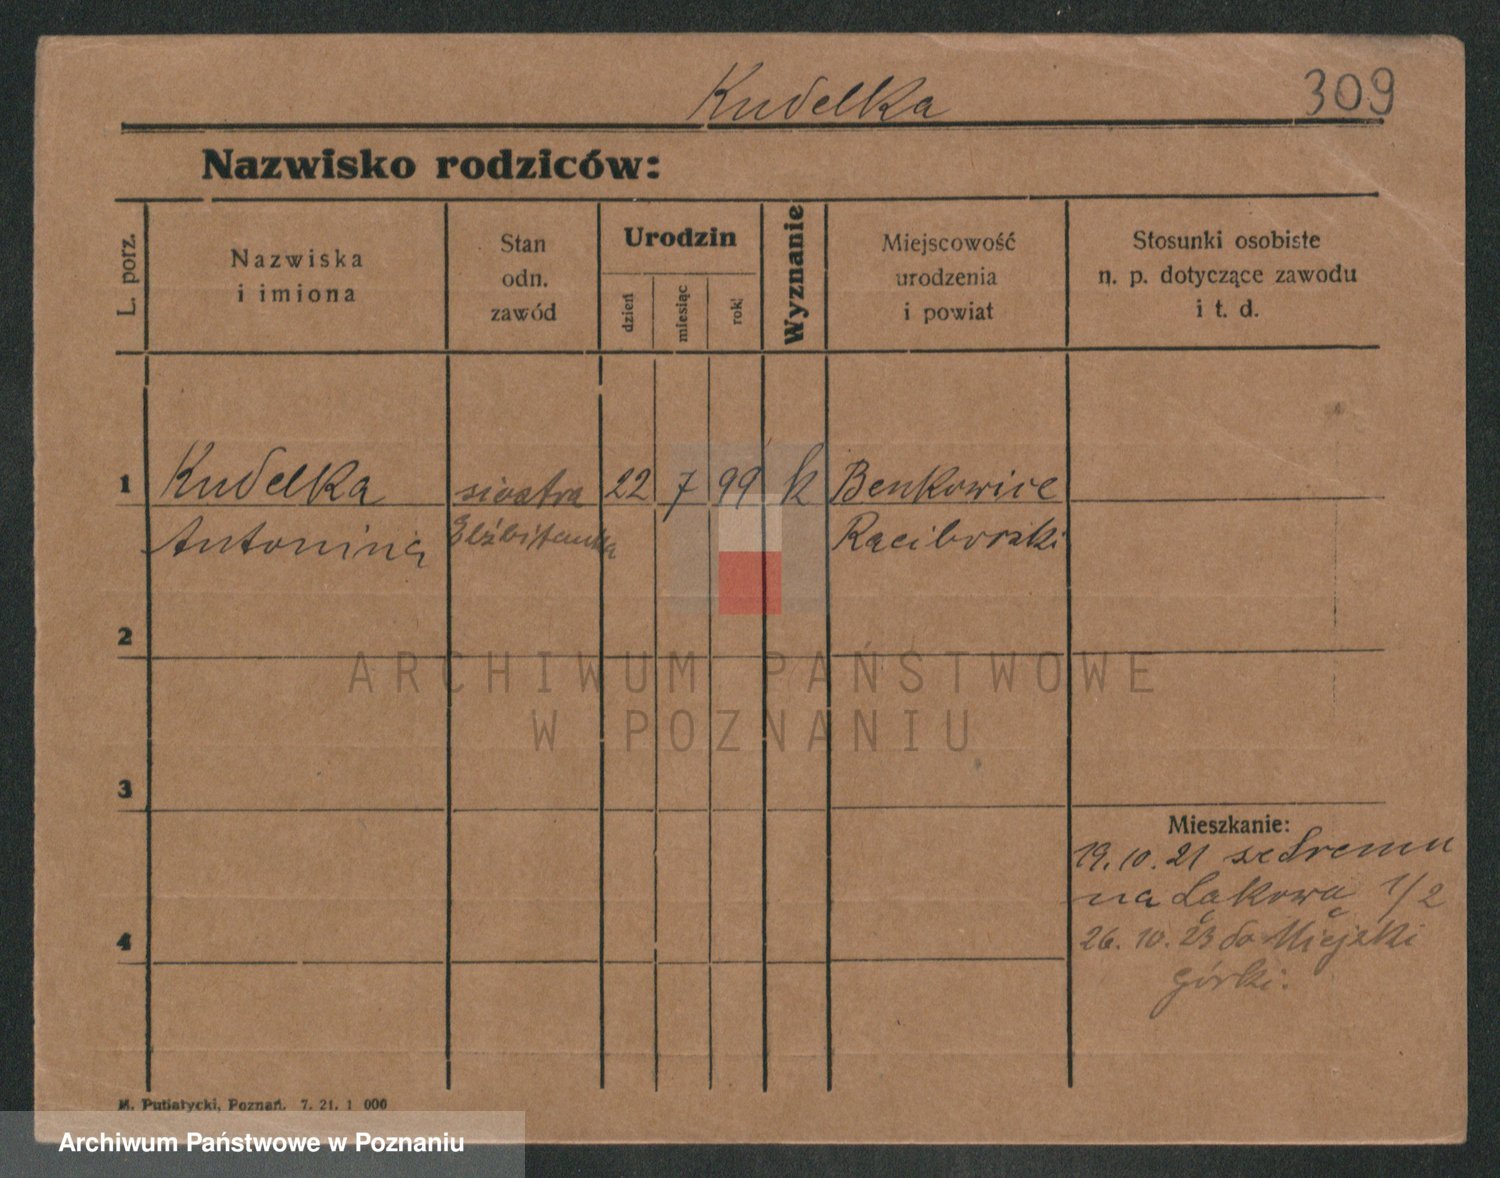 Kudelka 309
Nazwisko rodziców:
L. porz.
Nazwiska
i imiona
Stan
odn.
zawód
Urodzin
dzień
miesiąc
rok
Wyznanie
Miejscowość
urodzenia
i powiat
Stosunki osobiste
n. p. dotyczące zawodu
i t. d.
1 Kudelka siostra 22 7 99 k Benkowice
Antonina Elżbietanka Raciborski
2
ARCHIWUM PAŃSTWOWE
W POZNANIU
3
Mieszkanie:
19.10.21 ze Śremu
na Łąkową 1/2
4
26.10.23 do Miejski
górki.
M. Putiatycki, Poznań. 7. 21. 1 000
Archiwum Państwowe w Poznaniu